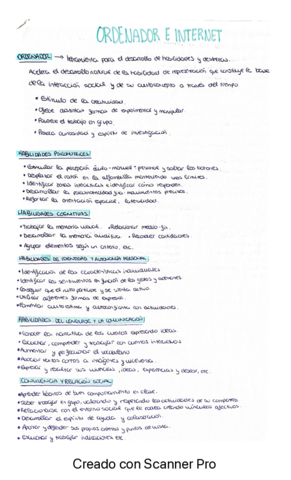 ORDENADOR E INTERNET
ORDENADOR → Herramienta para el desarrollo de habilidades y destrezas.
Acelera el desarrollo natural de la habilidad de representación que constituye la base
de la interacción social y de su conocimiento a través del tiempo
• Estímulo de la creatividad.
• Ofrece distintas formas de experimentar y manipular.
• Favorece el trabajo en grupo.
• curiosidad y espíritu de investigación.
HABILIDADES PSICOMOTRICES
• Estimular la percepción óculo-manual: y los botones.
• Desplazar el ratón en la alfombrilla manteniendo unos límites.
• Identificar e identificar cómo responden.
• Desarrollar la psicomotricidad movimientos precisos.
• Reforzar la orientación espacial, lateralidad.
HABILIDADES COGNITIVAS:
• Trabajar la memoria visual. • Relacionar medio-fin.
• Desarrollar la memoria auditiva. • Reconocer cualidades
• Agrupar elementos según un criterio, etc.
HABILIDADES DE IDENTIDAD Y AUTONOMÍA PERSONAL
• Identificación de las características individuales
• Identificar los sentimientos en función de los gestos y acciones
• Conseguir que el niño participe y se sienta activo.
• Utilizar diferentes formas de expresión.
• Fomentar autoestima y
HABILIDADES DEL LENGUAJE Y LA COMUNICACIÓN
• Conocer la narrativa de los cuentos expresando ideas.
• Escuchar, comprender y trabajar con cuentos interactivos
• Aumentar y perfeccionar el vocabulario
• Asociar textos cortos a imágenes y
• Expresar y ideas, experiencias y deseos, etc
CONVIVENCIA Y RELACIÓN SOCIAL
• Aprender técnicas de buen comportamiento en clase.
• Saber trabajar en grupo, valorando y respetando las actuaciones de su compañero
• Relacionarse con el entorno social que le rodea creando vínculos afectivos.
• Desarrollar el espíritu de ayuda y colaboración
• Aportar y defender sus propios criterios y puntos de vista.
• Escuchar y indicaciones etc
Creado con Scanner Pro